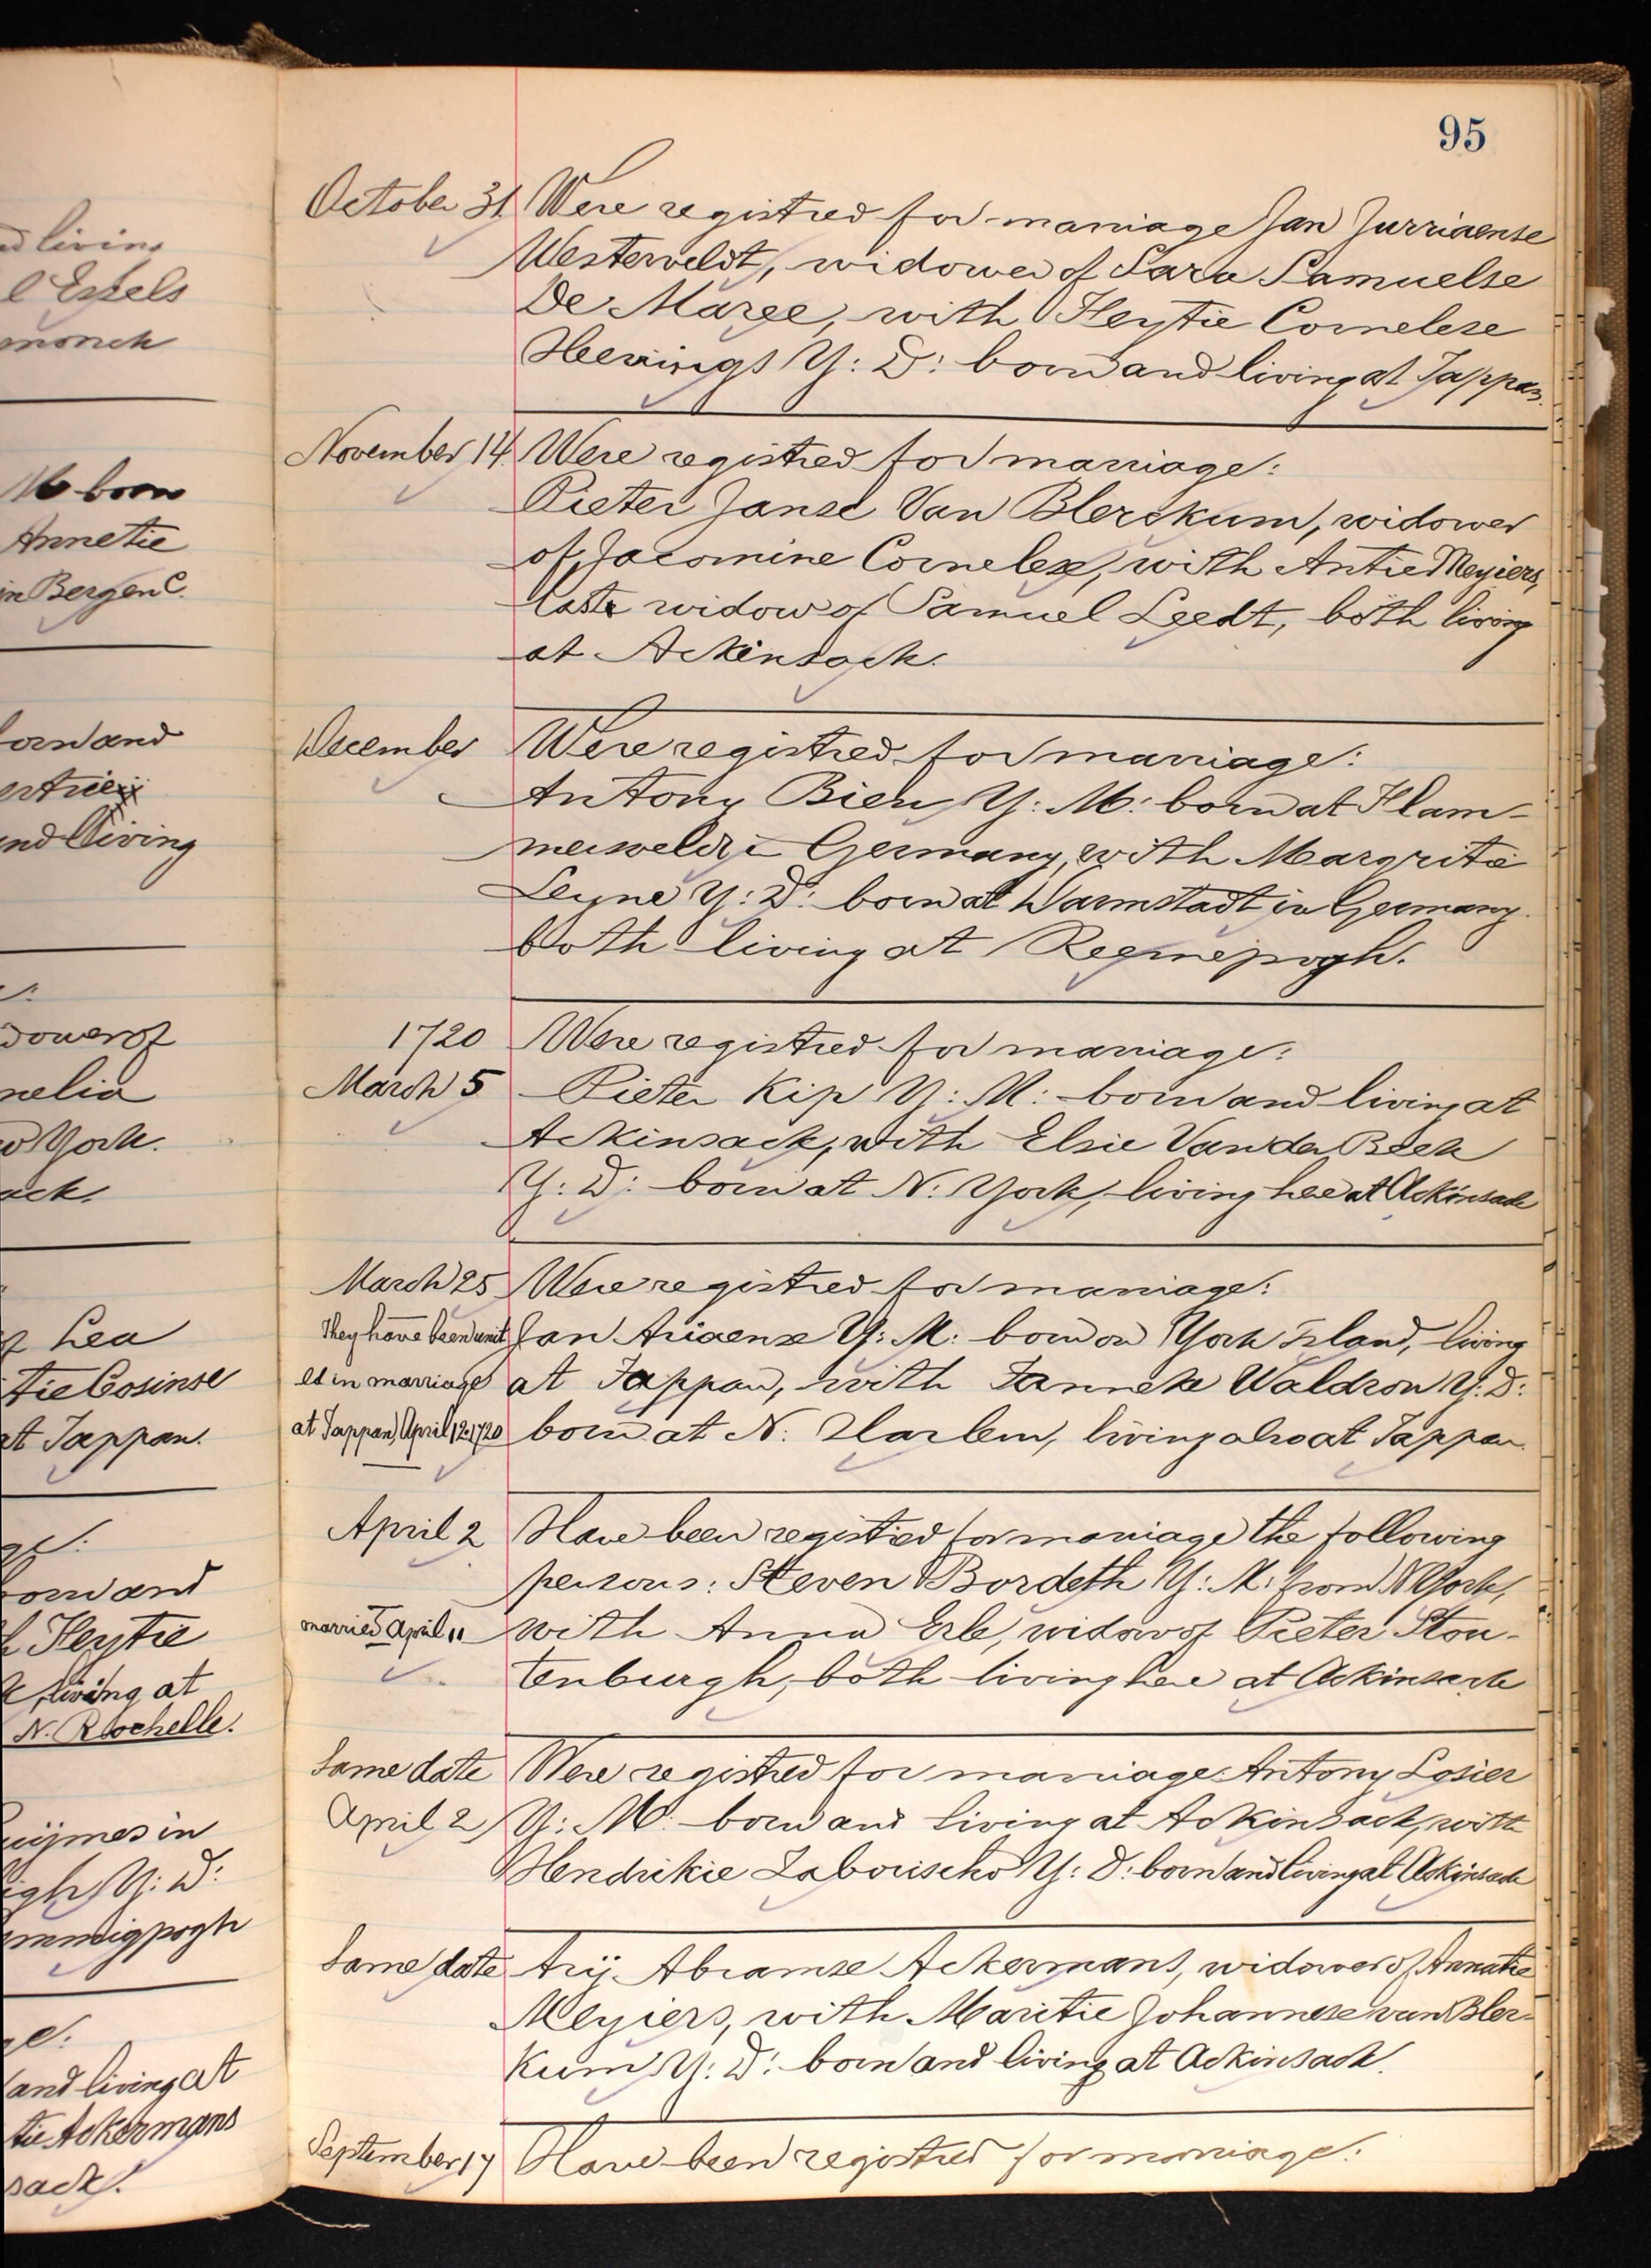 d living
l Essels
monck
M born
Annetie
in Bergen C.
orn and
and living
dower of
nelia
w York.
ack.
Lea
tie Cosinse
at Tappan.
born and
Heytie
living at
N. Rochelle.
uijmes in
igh Y: D:
mmigpogh
ge:
and living at
tie Ackermans
sack.
95
October 31 Were registred for marriage Jan Jurriaense
Westerveldt, widower of Sara Samuelse
De Maree, with Heytie Cornelese
Heerings Y: D: born and living at Tappan.
November 14 Were registred for marriage:
Pieter Janse Van Blerckum, widower
of Jacomine Cornelese, with Antie Meyiers,
last widow of Samuel Leedt, both living
at Ackinsack.
December Were registred for marriage:
Antony Bien Y: M: born at Flam-
Germany, with Margritie
Leyne Y: D: born at Darmstadt in Germany.
both living at Reemepogh.
1720 Were registred for marriage:
March 5 Pieter Kip Y: M: born and living at
Ackinsack, with Elsie Van der Beek
Y: D: born at N: York, living here at Ackinsack
March 25 Were registred for marriage:
They have been unit Jan Ariaense Y: M: born on York Island, living
ed in marriage at Tappan, with Janneke Waldron Y: D:
at Tappan, April 12. 1720 born at N: Harlem, living also at Tappan.
April 2 Have been registred for marriage the following
persons: Steven Bordeth Y: M: from N York,
married April 11 with Anna Erle, widow of Pieter Stou-
tenburgh, both living here at Ackinsack
Same date Were registred for marriage: Antony Losier
April 2 Y: M: born and living at Ackinsack, with
Hendrikie Zaborischo Y: D: born and living at Ackinsack
Same date Arij Abramse Ackermans, widower of Annatie
Meyiers, with Maritie Johannese van Bler-
kum Y: D: born and living at Ackinsack.
September 17 Have been registred for marriage: